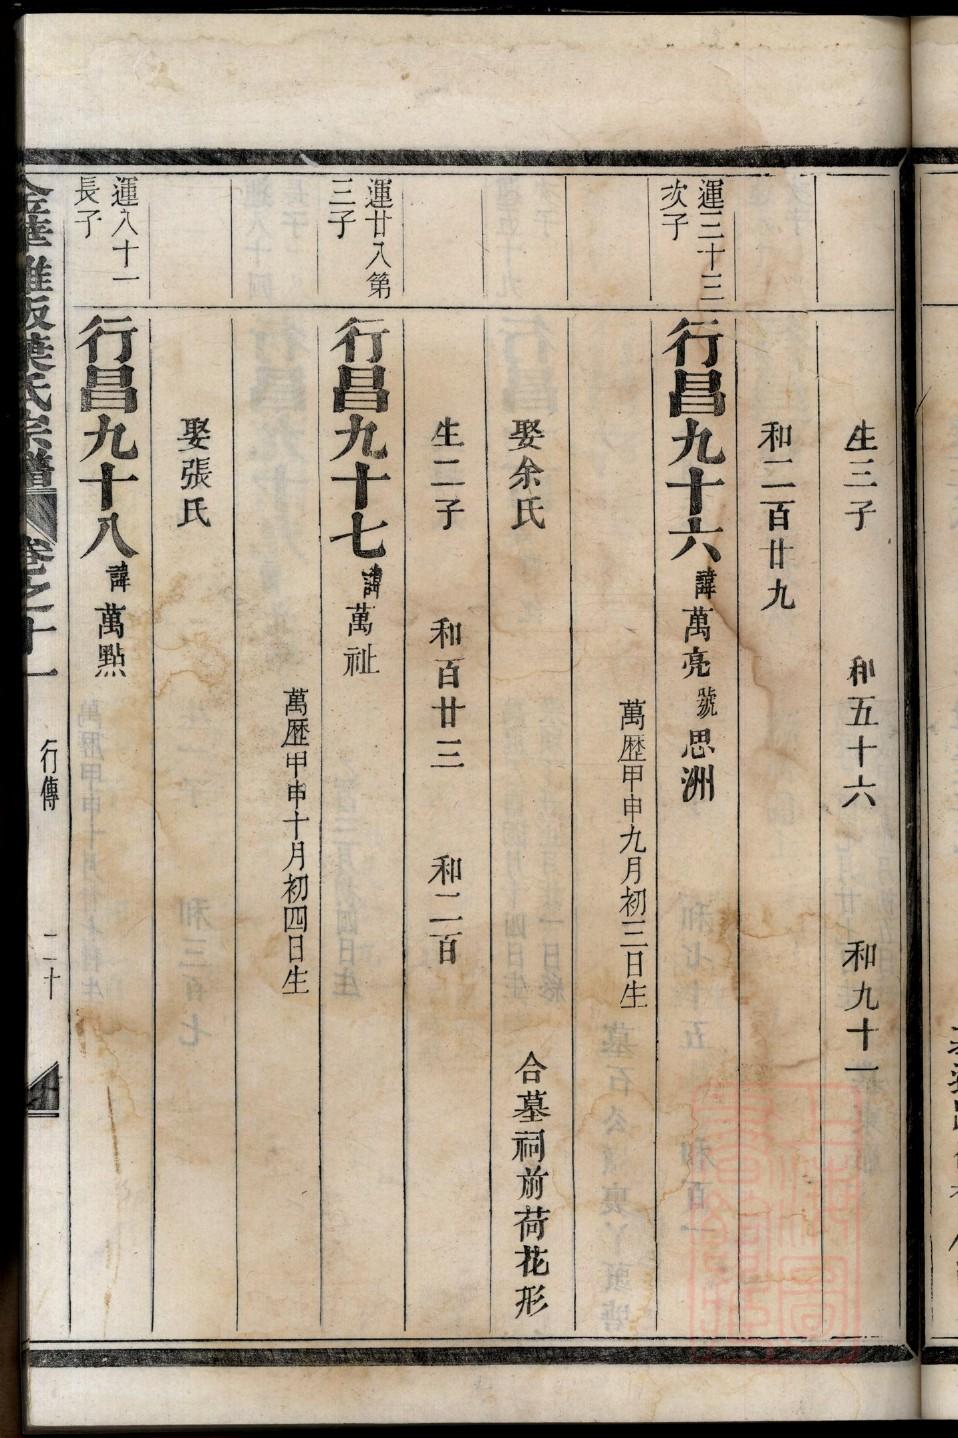 生三子　和五十六　和九十一
和二百廿九
運三十三
次子
行昌九十六　諱萬亮　號思洲
萬歷甲申九月初三日生
娶余氏　合墓祠前荷花形
生二子　和百廿三　和二百
運廿八第
三子
行昌九十七　諱萬祉
萬歷甲申十月初四日生
娶張氏
運八十一
長子
行昌九十八　諱萬點
葉氏宗譜　卷之十一　行傳　二十